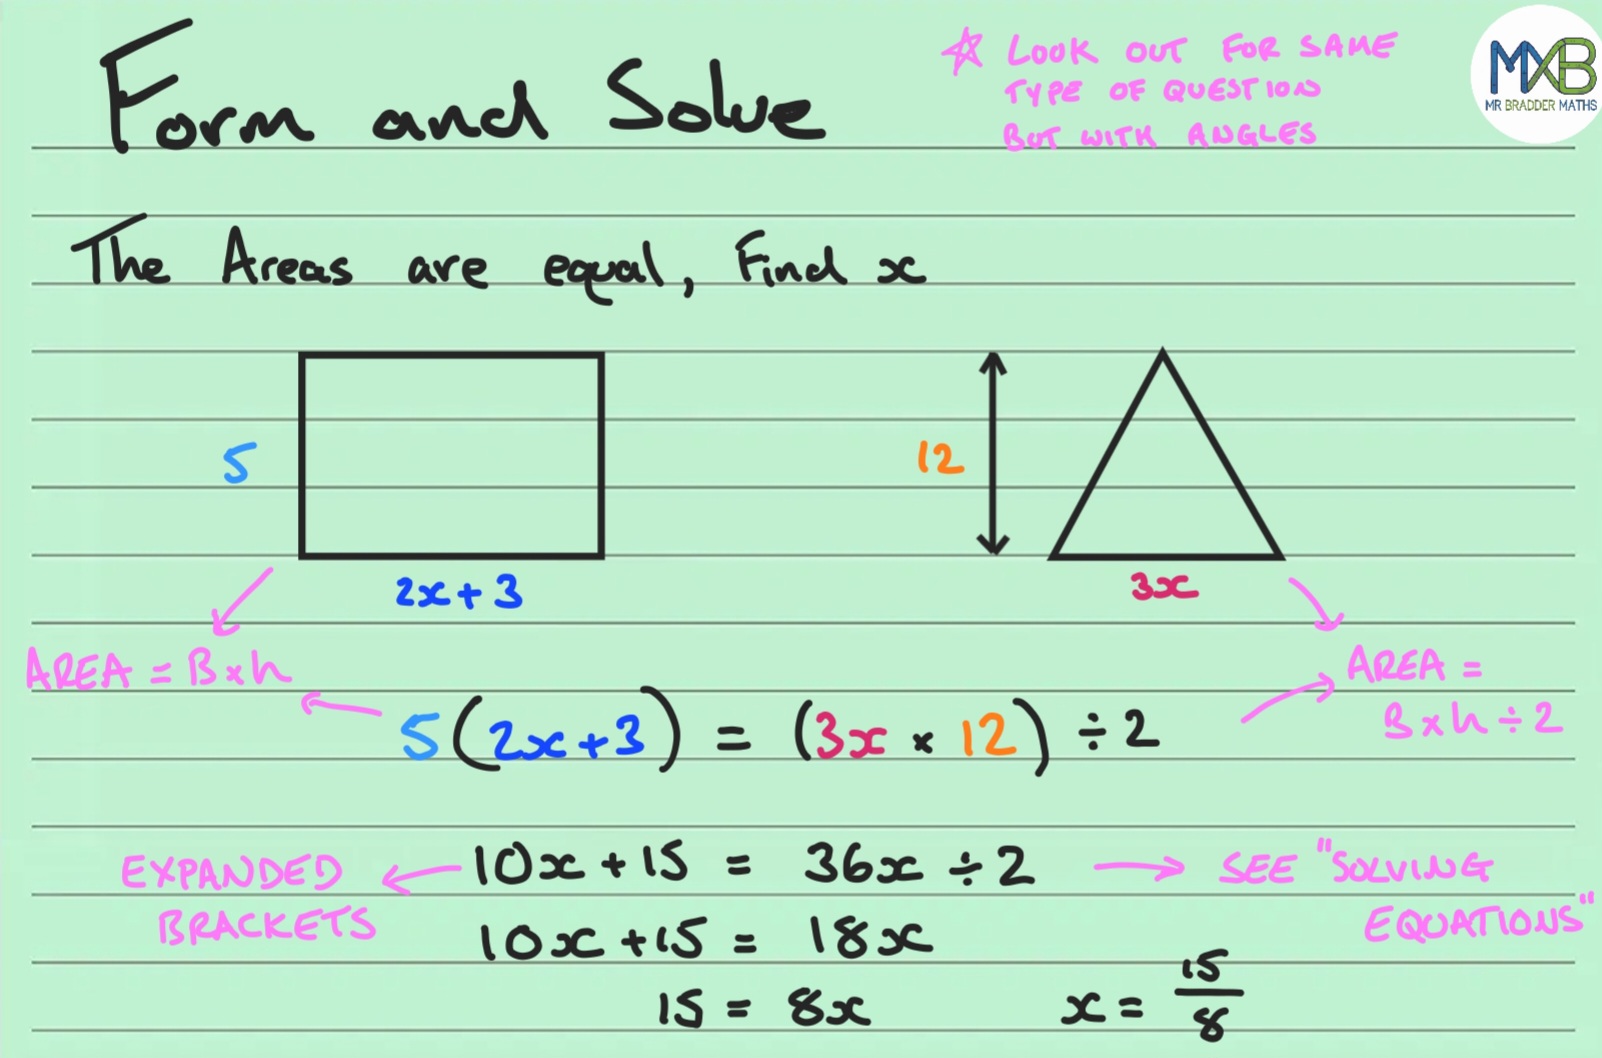 Form and Solve
☆ LOOK OUT FOR SAME
TYPE OF QUESTION
BUT WITH ANGLES
MXB
MR BRADDER MATHS
The Areas are equal, Find x
5
2x+3
12
3x
AREA = B×h
AREA =
B×h÷2
5(2x+3) = (3x × 12) ÷2
EXPANDED
BRACKETS
10x+15 = 36x ÷2
SEE "SOLVING
EQUATIONS"
10x+15 = 18x
15 = 8x
x = 15/8